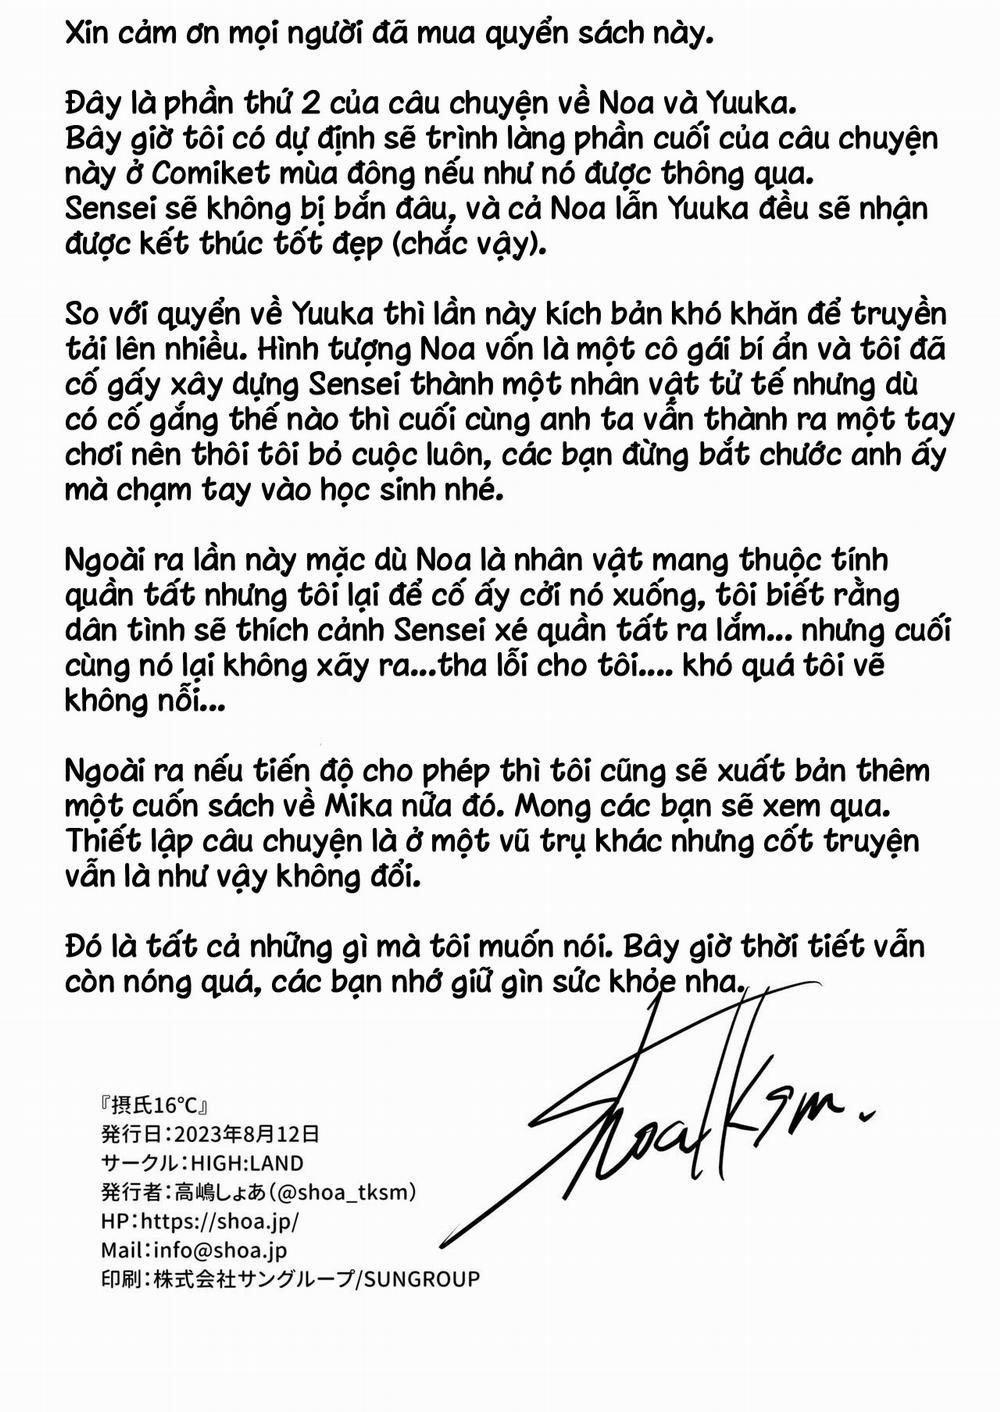 Xin cảm ơn mọi người đã mua quyển sách này.
Đây là phần thứ 2 của câu chuyện về Noa và Yuuka.
Bây giờ tôi có dự định sẽ trình làng phần cuối của câu chuyện
này ở Comiket mùa đông nếu như nó được thông qua.
Sensei sẽ không bị bắn đâu, và cả Noa lẫn Yuuka đều sẽ nhận
được kết thúc tốt đẹp (chắc vậy).
So với quyển về Yuuka thì lần này kích bản khó khăn để truyền
tải lên nhiều. Hình tượng Noa vốn là một cô gái bí ẩn và tôi đã
cố gấy xây dựng Sensei thành một nhân vật tử tế nhưng dù
có cố gắng thế nào thì cuối cùng anh ta vẫn thành ra một tay
chơi nên thôi tôi bỏ cuộc luôn, các bạn đừng bắt chước anh ấy
mà chạm tay vào học sinh nhé.
Ngoài ra lần này mặc dù Noa là nhân vật mang thuộc tính
quần tất nhưng tôi lại để cố ấy cởi nó xuống, tôi biết rằng
dân tình sẽ thích cảnh Sensei xé quần tất ra lắm... nhưng cuối
cùng nó lại không xãy ra...tha lỗi cho tôi.... khó quá tôi vẽ
không nỗi...
Ngoài ra nếu tiến độ cho phép thì tôi cũng sẽ xuất bản thêm
một cuốn sách về Mika nữa đó. Mong các bạn sẽ xem qua.
Thiết lập câu chuyện là ở một vũ trụ khác nhưng cốt truyện
vẫn là như vậy không đổi.
Đó là tất cả những gì mà tôi muốn nói. Bây giờ thời tiết vẫn
còn nóng quá, các bạn nhớ giữ gìn sức khỏe nha.
Shoa Tksm.
『摂氏16℃』
発行日：2023年8月12日
サークル：HIGH:LAND
発行者：高嶋しょあ（@shoa_tksm）
HP：https://shoa.jp/
Mail：info@shoa.jp
印刷：株式会社サングループ/SUNGROUP